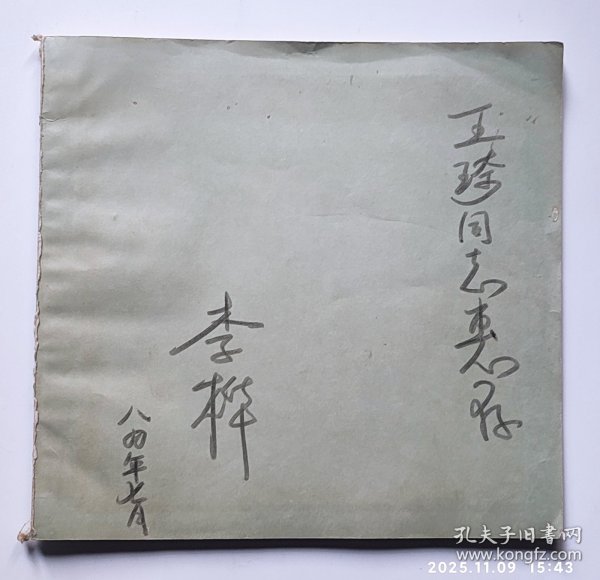 王琦同志惠存
李桦
八四年七月
孔夫子旧书网
www.kongfz.com
2025.11.09 15:43